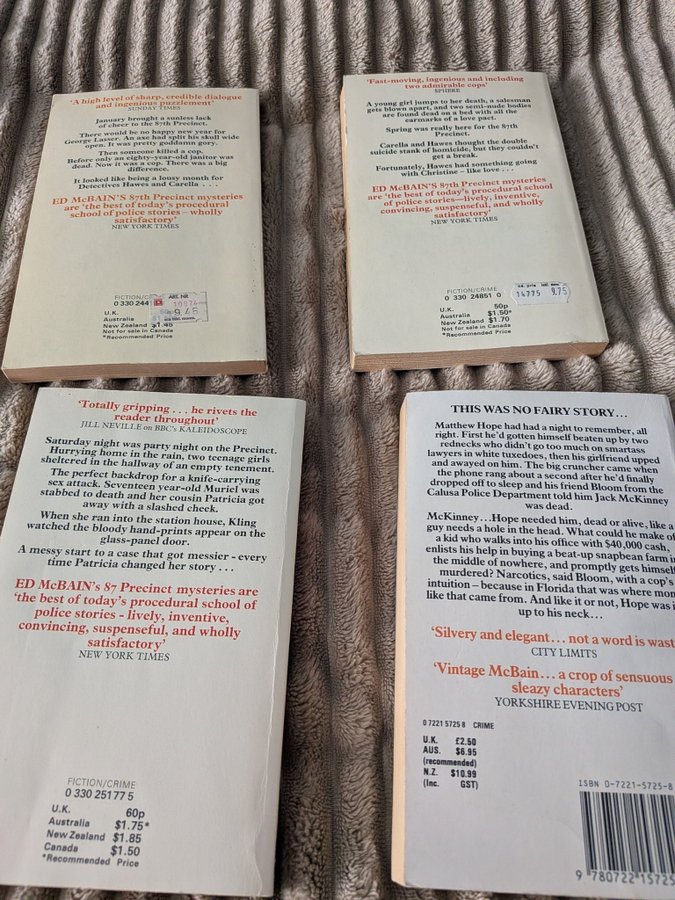 'A high level of sharp, credible dialogue
and ingenious puzzlement'
SUNDAY TIMES
January brought a sunless lack
of cheer to the 87th Precinct.
There would be no happy new year for
George Lasser. An axe had split his skull wide
open. It was pretty goddamn gory.
Then someone killed a cop.
Before only an eighty-year-old janitor was
dead. Now it was a cop. There was a big
difference.
It looked like being a lousy month for
Detectives Hawes and Carella . . .
ED McBAIN'S 87th Precinct mysteries
are 'the best of today's procedural
school of police stories – wholly
satisfactory'
NEW YORK TIMES
FICTION/CRIME
0 330 244
U.K.
Australia
New Zealand $1.45
Not for sale in Canada
*Recommended Price
ART. NR.
10874
9.45
'Fast-moving, ingenious and including
two admirable cops'
SPHERE
A young girl jumps to her death, a salesman
gets blown apart, and two semi-nude bodies
are found dead on a bed with all the
earmarks of a love pact.
Spring was really here for the 87th
Precinct.
Carella and Hawes thought the double
suicide stank of homicide, but they couldn't
get a break.
Fortunately, Hawes had something going
with Christine – like love . . .
ED McBAIN'S 87th Precinct mysteries
are 'the best of today's procedural school
of police stories—lively, inventive,
convincing, suspenseful, and wholly
satisfactory'
NEW YORK TIMES
FICTION/CRIME
0 330 24851 0
U.K. 50p
Australia $1.50*
New Zealand $1.70
*Recommended Price
14775 9.75
'Totally gripping . . . he rivets the
reader throughout'
JILL NEVILLE on BBC's KALEIDOSCOPE
Saturday night was party night on the Precinct.
Hurrying home in the rain, two teenage girls
sheltered in the hallway of an empty tenement.
The perfect backdrop for a knife-carrying
sex attack. Seventeen year-old Muriel was
stabbed to death and her cousin Patricia got
away with a slashed cheek.
When she ran into the station house, Kling
watched the bloody hand-prints appear on the
glass-panel door.
A messy start to a case that got messier - every
time Patricia changed her story . . .
ED McBAIN's 87 Precinct mysteries are
'the best of today's procedural school of
police stories - lively, inventive,
convincing, suspenseful, and wholly
satisfactory'
NEW YORK TIMES
FICTION/CRIME
0 330 25177 5
U.K. 60p
Australia $1.75*
New Zealand $1.85
Canada $1.50
*Recommended Price
THIS WAS NO FAIRY STORY...
Matthew Hope had had a night to remember, all
right. First he'd gotten himself beaten up by two
rednecks who didn't go too much on smartass
lawyers in white tuxedoes, then his girlfriend upped
and awayed on him. The big cruncher came when
the phone rang about a second after he'd finally
dropped off to sleep and his friend Bloom from the
Calusa Police Department told him Jack McKinney
was dead.
McKinney...Hope needed him, dead or alive, like a
guy needs a hole in the head. What could he make of
a kid who walks into his office with $40,000 cash,
enlists his help in buying a beat-up snapbean farm in
the middle of nowhere, and promptly gets himself
murdered? Narcotics, said Bloom, with a cop's
intuition – because in Florida that was where mon
like that came from. And like it or not, Hope was i
up to his neck...
'Silvery and elegant... not a word is wast
CITY LIMITS
'Vintage McBain... a crop of sensuous
sleazy characters'
YORKSHIRE EVENING POST
0 7221 5725 8 CRIME
U.K. £2.50
AUS. $6.95
(recommended)
N.Z. $10.99
(Inc. GST)
ISBN 0-7221-5725-8
9 780722 15725